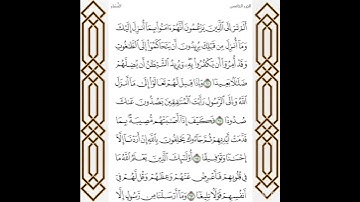 الجزء الخامس
النساء
أَلَمْ تَرَ إِلَى الَّذِينَ يَزْعُمُونَ أَنَّهُمْ ءَامَنُوا بِمَا أُنزِلَ إِلَيْكَ
وَمَا أُنزِلَ مِن قَبْلِكَ يُرِيدُونَ أَن يَتَحَاكَمُوا إِلَى الطَّاغُوتِ
وَقَدْ أُمِرُوا أَن يَكْفُرُوا بِهِ وَيُرِيدُ الشَّيْطَانُ أَن يُضِلَّهُمْ
ضَلَالًا بَعِيدًا ٦٠ وَإِذَا قِيلَ لَهُمْ تَعَالَوْا إِلَى مَا أَنزَلَ
اللَّهُ وَإِلَى الرَّسُولِ رَأَيْتَ الْمُنَافِقِينَ يَصُدُّونَ عَنكَ
صُدُودًا ٦١ فَكَيْفَ إِذَا أَصَابَتْهُم مُّصِيبَةٌ بِمَا
قَدَّمَتْ أَيْدِيهِمْ ثُمَّ جَاءُوكَ يَحْلِفُونَ بِاللَّهِ إِنْ أَرَدْنَا إِلَّا
إِحْسَانًا وَتَوْفِيقًا ٦٢ أُولَٰئِكَ الَّذِينَ يَعْلَمُ اللَّهُ مَا
فِي قُلُوبِهِمْ فَأَعْرِضْ عَنْهُمْ وَعِظْهُمْ وَقُل لَّهُمْ فِي
أَنفُسِهِمْ قَوْلًا بَلِيغًا ٦٣ وَمَا أَرْسَلْنَا مِن رَّسُولٍ إِلَّا